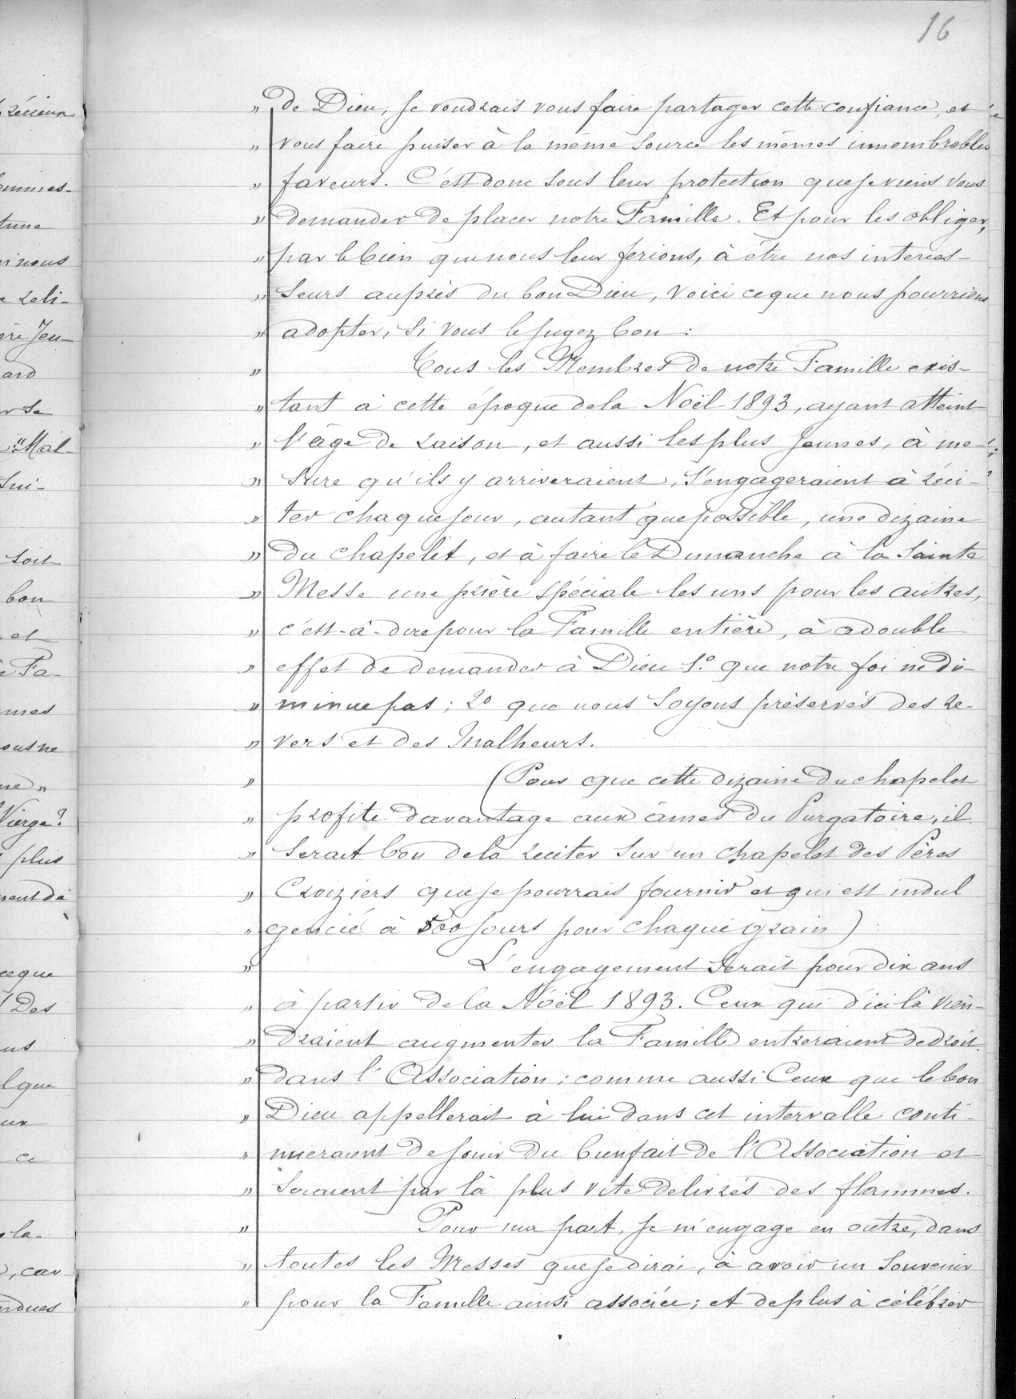 16
" de Dieu, je voudrais vous faire partager cette confiance, et
" vous faire puiser à la même source les mêmes innombrables
" faveurs. C'est donc sous leur protection que je viens vous
" demander de placer notre Famille. Et pour les obliger,
" par le bien que nous leur ferions, à être nos interces-
" seurs auprès du bon Dieu, voici ce que nous pourrions
" adopter, si vous le jugez bon :
" Tous les Membres de notre Famille exis-
" tant à cette époque de la Noël 1893, ayant atteint
" l'âge de raison, et aussi les plus jeunes, à me-
" sure qu'ils y arriveraient, s'engageraient à réci-
" ter chaque jour, autant que possible, une dizaine
" du chapelet, et à faire le Dimanche à la Sainte
" Messe une prière spéciale les uns pour les autres,
" c'est-à-dire pour la Famille entière, à double
" effet de demander à Dieu 1º que notre foi ne di-
" minue pas ; 2º que nous soyons préservés des re-
" vers et des Malheurs.
" (Pour que cette dizaine du chapelet
" profite davantage aux âmes du Purgatoire, il
" serait bon de la reciter sur un chapelet des Pères
" Croiziers que je pourrais fournir et qui est indul
" gencié à 500 jours pour chaque grain)
" L'engagement serait pour dix ans
" à partir de la Noël 1893. Ceux qui d'ici là vien-
" draient augmenter la Famille entreraient de droit
" dans l'Association ; comme aussi Ceux que le bon
" Dieu appellerait à lui dans cet intervalle conti-
" nueraient de jouir du bienfait de l'Association et
" seraient par là plus vite delivrés des flammes.
" Pour ma part, je m'engage en outre, dans
" toutes les Messes que je dirai, à avoir un souvenir
" pour la Famille ainsi associée ; et de plus à célébrer